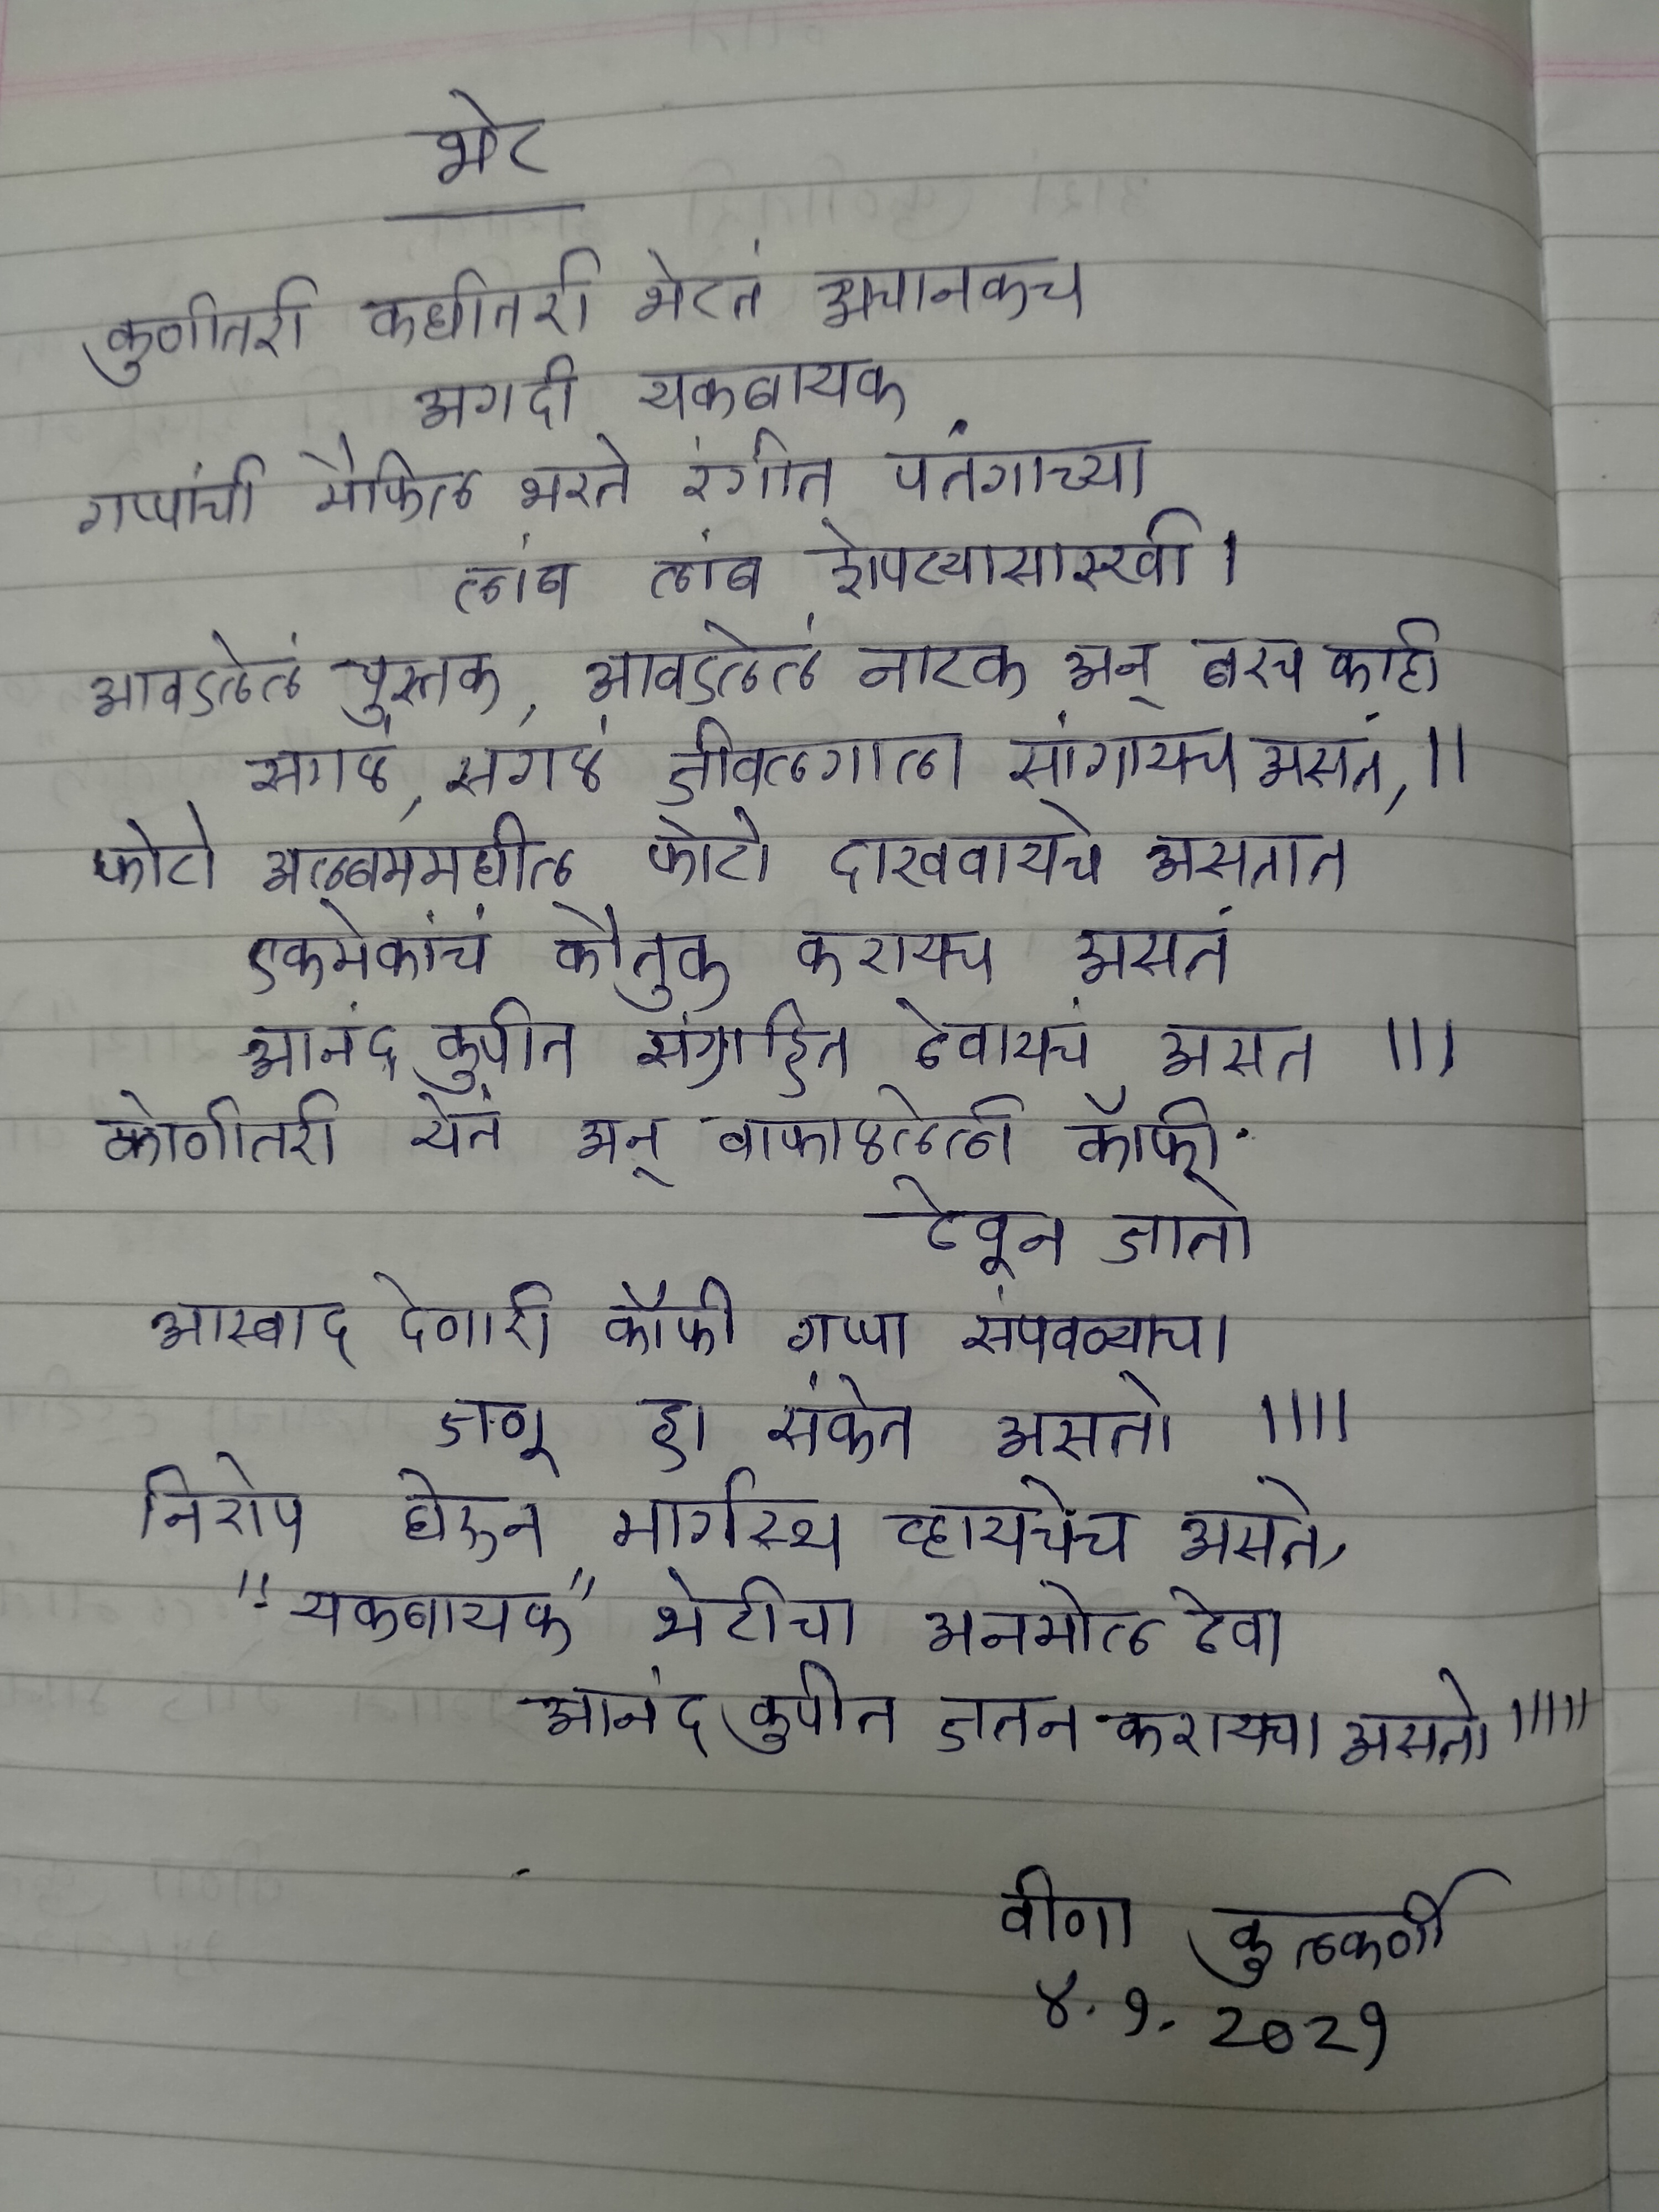 भेट
कुणीतरी कधीतरी भेटतं अचानकच
अगदी यकबायक
गप्पांची मैफिल भरते रंगीत पतंगाच्या
लांब लांब शेपट्यासारखी ।
आवडलेलं पुस्तक, आवडलेलं नाटक अन् बरच काही
सगळं, सगळं जीवलगाला सांगायच असतं, ।।
फोटो अल्बममधील फोटो दाखवायचे असतात
एकमेकांचं कौतुक करायच असतं
आनंद कुपीत संग्रहित ठेवायचं असत ।।।
कोणीतरी येतं अन् वाफाळलेली कॉफी
ठेवून जातो
आस्वाद देणारी कॉफी गप्पा संपवण्याचा
जणू हा संकेत असतो ।।।।
निरोप घेऊन मार्गस्थ व्हायचेच असते,
"यकबायक" भेटीचा अनमोल ठेवा
आनंद कुपीत जतन करायचा असतो ।।।।।
वीणा कुलकर्णी
४.१.२०२१